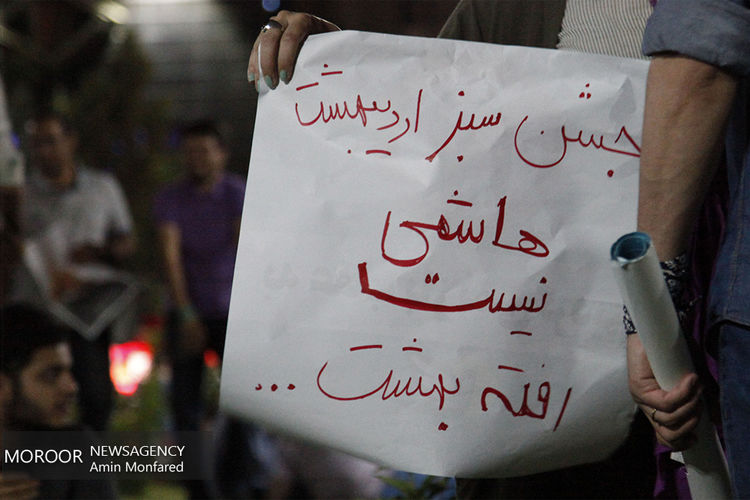 جشن سبز اردیبهشت
هاشمی
نیست
رفته بهشت ...
MOROOR NEWSAGENCY
Amin Monfared